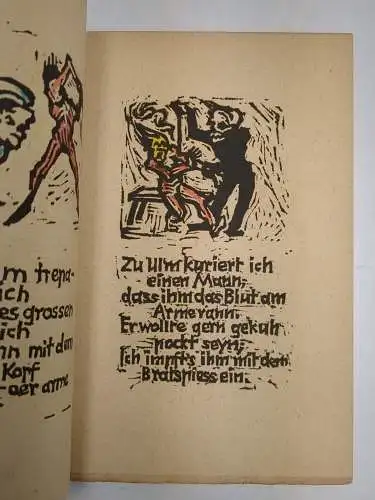 m trepa-
ich
es grossen
ich
nn mit dem
Kopf
t der arme
Zu Ulm kuriert ich
einen Mann,
dass ihm das Blut am
Arme rann.
Er wollte gern gekuh
pockt seyn,
Ich impfts ihm mit dem
Bratspiess ein.